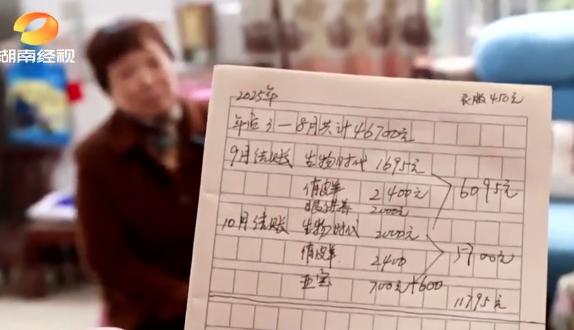 湖南经视
2025年
衣服450元
年底3—8月共计46700元
9月结账 生物时代 1695元
俏皮羊 2400元 6095元
眼 2000元
10月结账 生物时代 2000元
俏皮羊 2400 5700元
700元+600
11795元